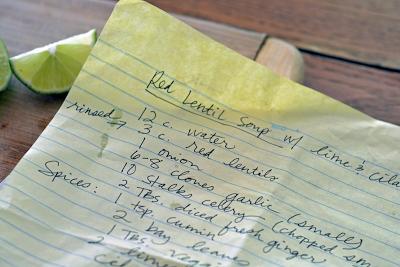 Red Lentil Soup w/ lime &
12 c. water
rinsed → 3 c. red lentils
1 onion
6-8 cloves garlic (small)
10 stalks celery (chopped sm
Spices: 2 Tbs. diced fresh ginger
1 tsp. cumin
2 bay leaves
1 Tbs.
2